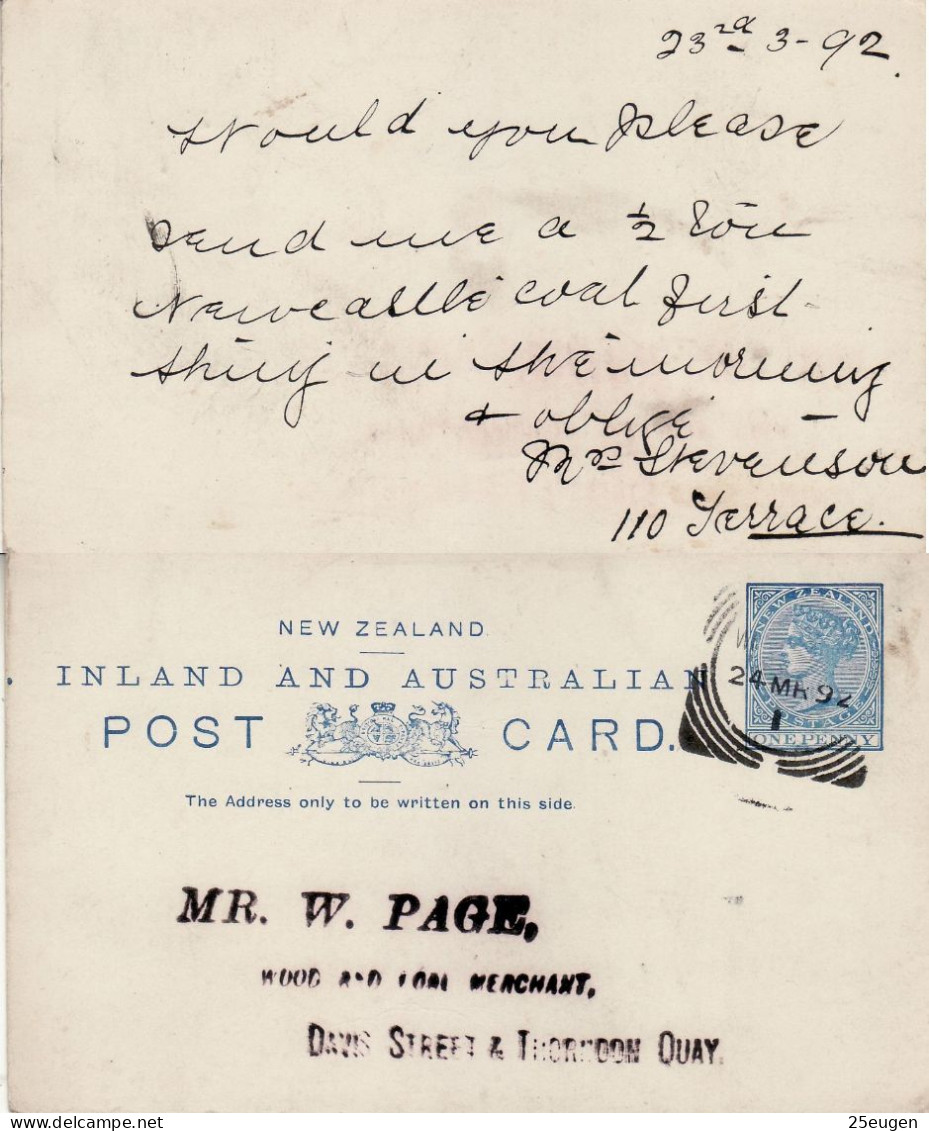 23rd 3-92.
Would you please
send me a ½ Ton
Newcastle coal first
thing in the morning
& oblige
Mrs Stevenson
110 Terrace.
NEW ZEALAND.
INLAND AND AUSTRALIAN
POST CARD.
The Address only to be written on this side.
NEW ZEALAND
POSTAGE
ONE PENNY
24 MR 92
1
MR. W. PAGE,
WOOD AND COAL MERCHANT,
DAVIS STREET & THORNDON QUAY.
25eugen